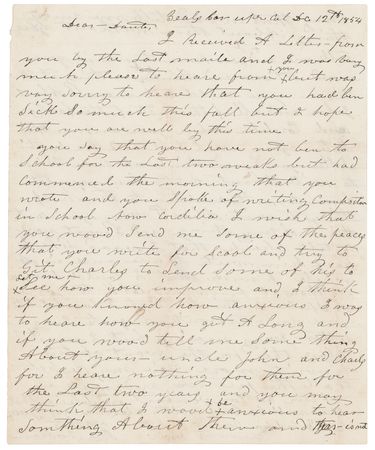 Beals Bar upr Cal Dec 12th 1854
Dear Daughter
I Received A Letter from
you by the Last maile and I was very
much please to heare from you but was
very sorry to heare that you had ben
Sick So much this fall but I hope
that you are well by this time
you say that you have not ben to
School for the Last two weaks but had
commenced the morning that you
wrote and you Spoke of writing Composition
in School Now Cordelia I wish that
you wood Send me Some of the peaces
that you write for Scool and try to
Git Charles to Send Some of his to
Let me
See how you improve and I think
if you knowd how anxious I was
to heare how you got A Long and
if you wood tell me Some thing
About your uncle John and Charls
for I heare nothing for them for
the Last two years and you may
think that I wood be anxious to hear
Somthing About them and